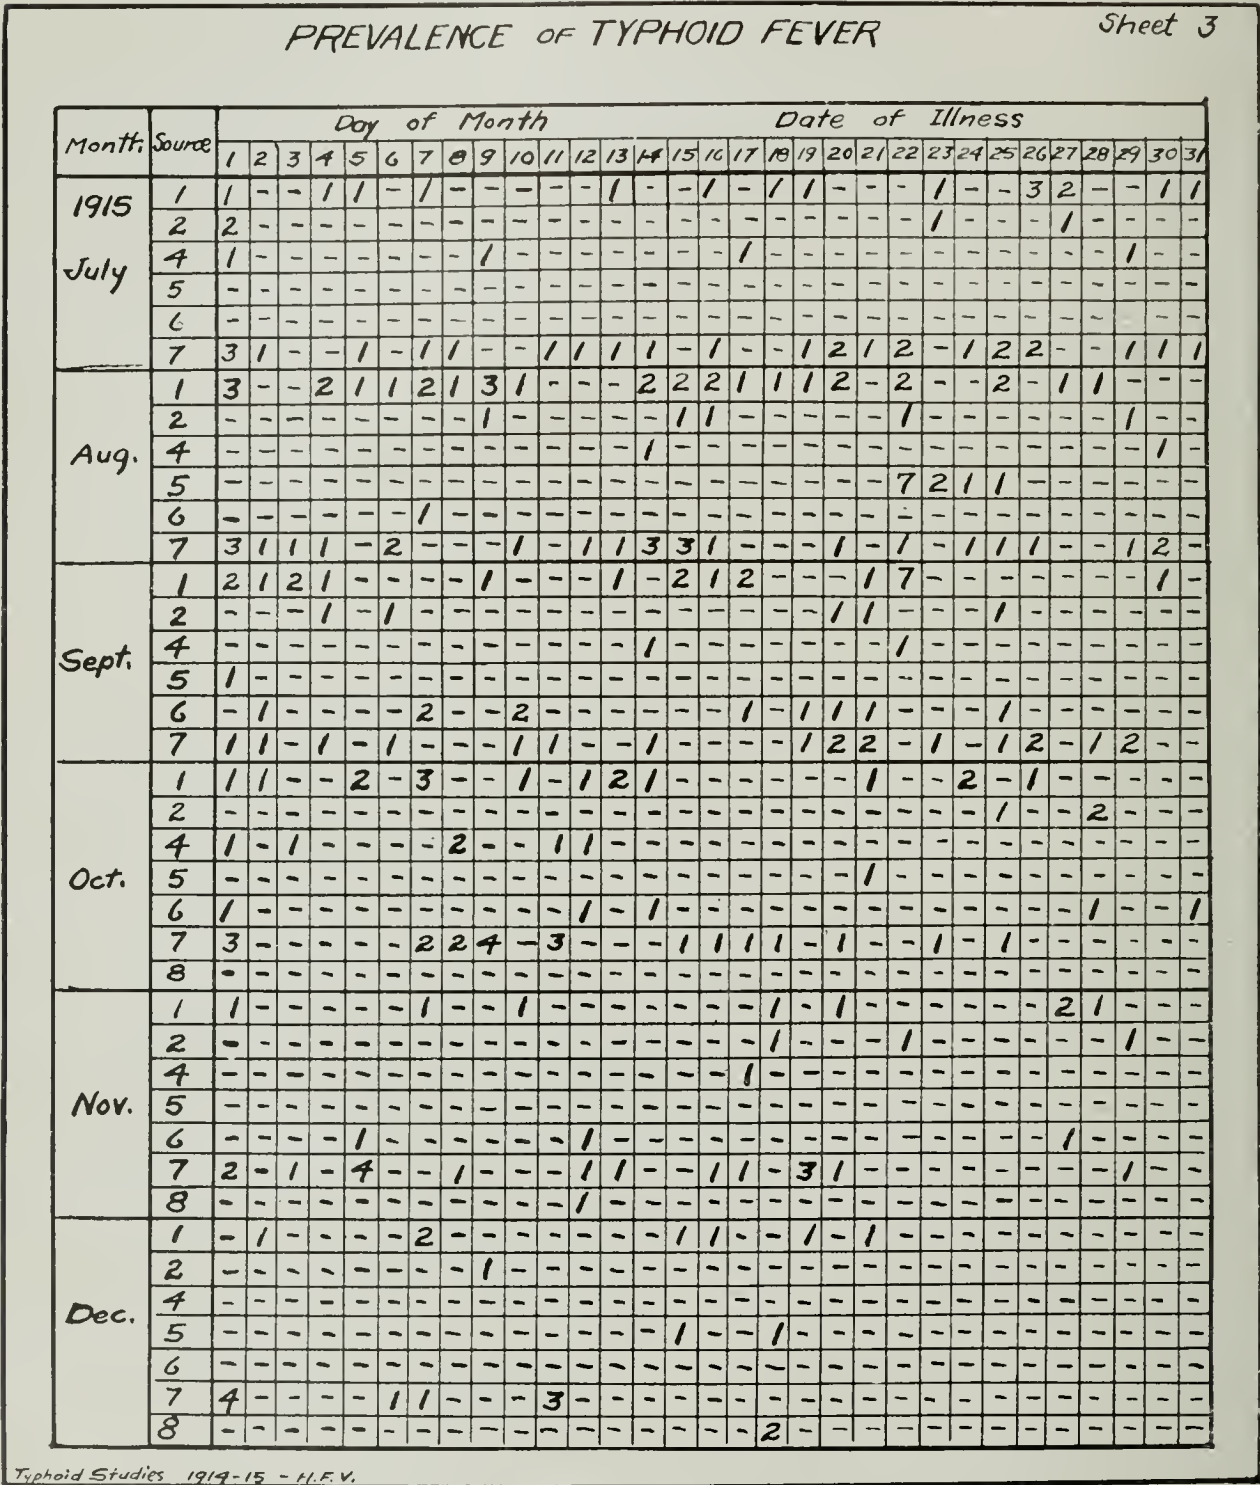 PREVALENCE OF TYPHOID FEVER
Sheet 3
Day of Month Date of Illness
Month. Source 1 2 3 4 5 6 7 8 9 10 11 12 13 14 15 16 17 18 19 20 21 22 23 24 25 26 27 28 29 30 31
1915 July
1 1 - - 1 1 - 1 - - - - - 1 - - 1 - 1 1 - - - 1 - - 3 2 - - 1 1
2 2 - - - - - - - - - - - - - - - - - - - - - 1 - - - 1 - - - -
4 1 - - - - - - - 1 - - - - - - - 1 - - - - - - - - - - - 1 - -
5 - - - - - - - - - - - - - - - - - - - - - - - - - - - - - - -
6 - - - - - - - - - - - - - - - - - - - - - - - - - - - - - - -
7 3 1 - - 1 - 1 1 - - 1 1 1 1 - 1 - - 1 2 1 2 - 1 2 2 - - 1 1 1
Aug.
1 3 - - 2 1 1 2 1 3 1 - - - 2 2 2 1 1 1 2 - 2 - - 2 - 1 1 - - -
2 - - - - - - - - 1 - - - - - 1 1 - - - - - 1 - - - - - - 1 - -
4 - - - - - - - - - - - - - 1 - - - - - - - - - - - - - - - 1 -
5 - - - - - - - - - - - - - - - - - - - - - 7 2 1 1 - - - - - -
6 - - - - - - 1 - - - - - - - - - - - - - - - - - - - - - - - -
7 3 1 1 1 - 2 - - - 1 - 1 1 3 3 1 - - - 1 - 1 - 1 1 1 - - 1 2 -
Sept.
1 2 1 2 1 - - - - 1 - - - 1 - 2 1 2 - - - 1 7 - - - - - - - 1 -
2 - - - 1 - 1 - - - - - - - - - - - - - 1 1 - - - 1 - - - - - -
4 - - - - - - - - - - - - - 1 - - - - - - - 1 - - - - - - - - -
5 1 - - - - - - - - - - - - - - - - - - - - - - - - - - - - - -
6 - 1 - - - - 2 - - 2 - - - - - - 1 - 1 1 1 - - - 1 - - - - - -
7 1 1 - 1 - 1 - - - 1 1 - - 1 - - - - 1 2 2 - 1 - 1 2 - 1 2 - -
Oct.
1 1 1 - - 2 - 3 - - 1 - 1 2 1 - - - - - - 1 - - 2 - 1 - - - - -
2 - - - - - - - - - - - - - - - - - - - - - - - - 1 - - 2 - - -
4 1 - 1 - - - - 2 - - 1 1 - - - - - - - - - - - - - - - - - - -
5 - - - - - - - - - - - - - - - - - - - - 1 - - - - - - - - - -
6 1 - - - - - - - - - - 1 - 1 - - - - - - - - - - - - - 1 - - 1
7 3 - - - - - 2 2 4 - 3 - - - 1 1 1 1 - 1 - - 1 - 1 - - - - - -
8 - - - - - - - - - - - - - - - - - - - - - - - - - - - - - - -
Nov.
1 1 - - - - - 1 - - 1 - - - - - - - 1 - 1 - - - - - - 2 1 - - -
2 - - - - - - - - - - - - - - - - - 1 - - - 1 - - - - - - 1 - -
4 - - - - - - - - - - - - - - - - 1 - - - - - - - - - - - - - -
5 - - - - - - - - - - - - - - - - - - - - - - - - - - - - - - -
6 - - - - 1 - - - - - - 1 - - - - - - - - - - - - - - 1 - - - -
7 2 - 1 - 4 - - 1 - - - 1 1 - - 1 1 - 3 1 - - - - - - - - 1 - -
8 - - - - - - - - - - - 1 - - - - - - - - - - - - - - - - - - -
Dec.
1 - 1 - - - - 2 - - - - - - - 1 1 - - 1 - 1 - - - - - - - - - -
2 - - - - - - - - 1 - - - - - - - - - - - - - - - - - - - - - -
4 - - - - - - - - - - - - - - - - - - - - - - - - - - - - - - -
5 - - - - - - - - - - - - - - 1 - - 1 - - - - - - - - - - - - -
6 - - - - - - - - - - - - - - - - - - - - - - - - - - - - - - -
7 4 - - - - 1 1 - - - 3 - - - - - - - - - - - - - - - - - - - -
8 - - - - - - - - - - - - - - - - - 2 - - - - - - - - - - - - -
Typhoid Studies 1914-15 - H.F.V.